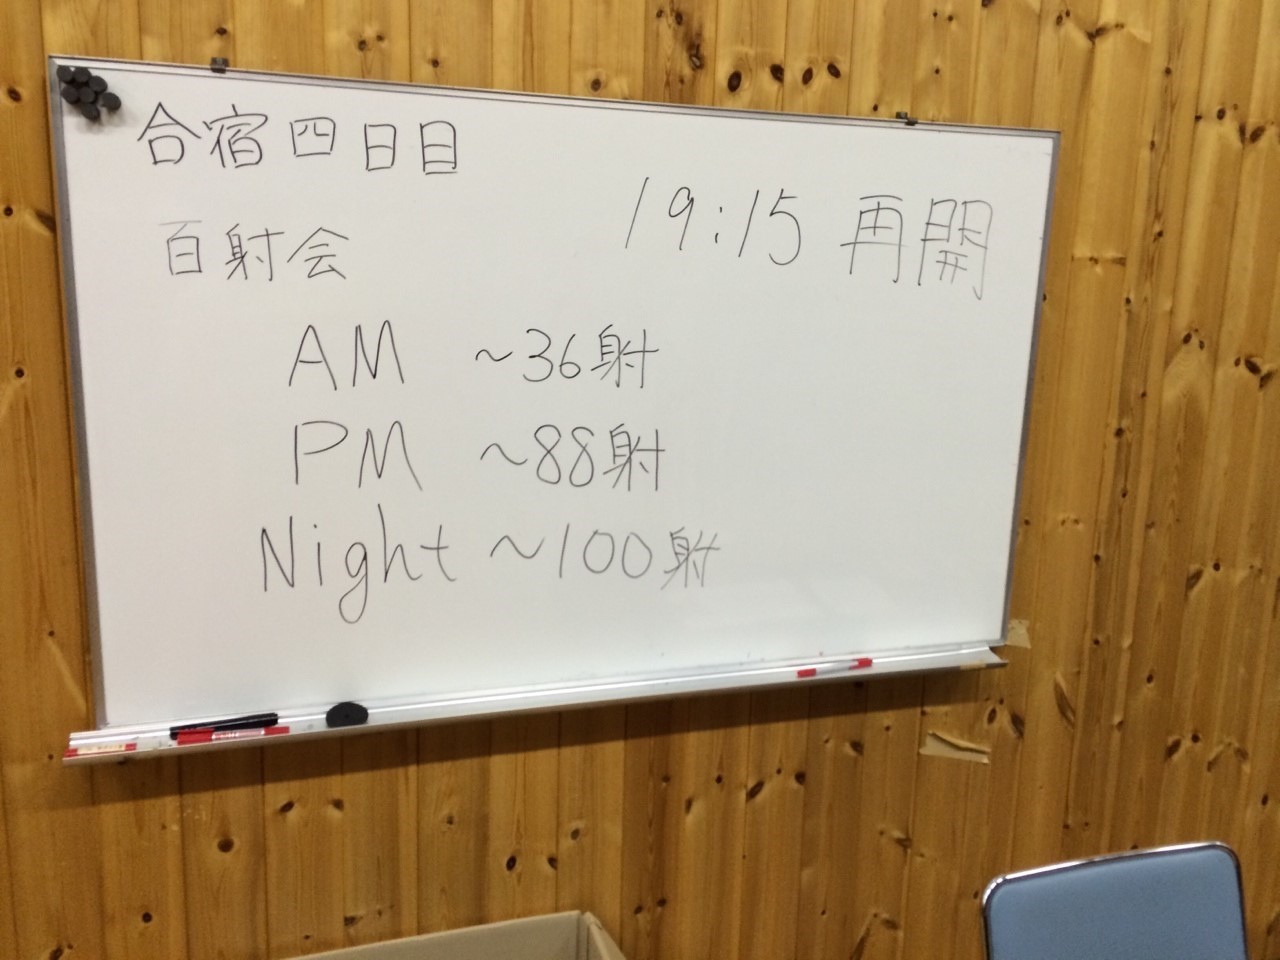 合宿四日目
19:15 再開
百射会
AM ~36射
PM ~88射
Night ~100射